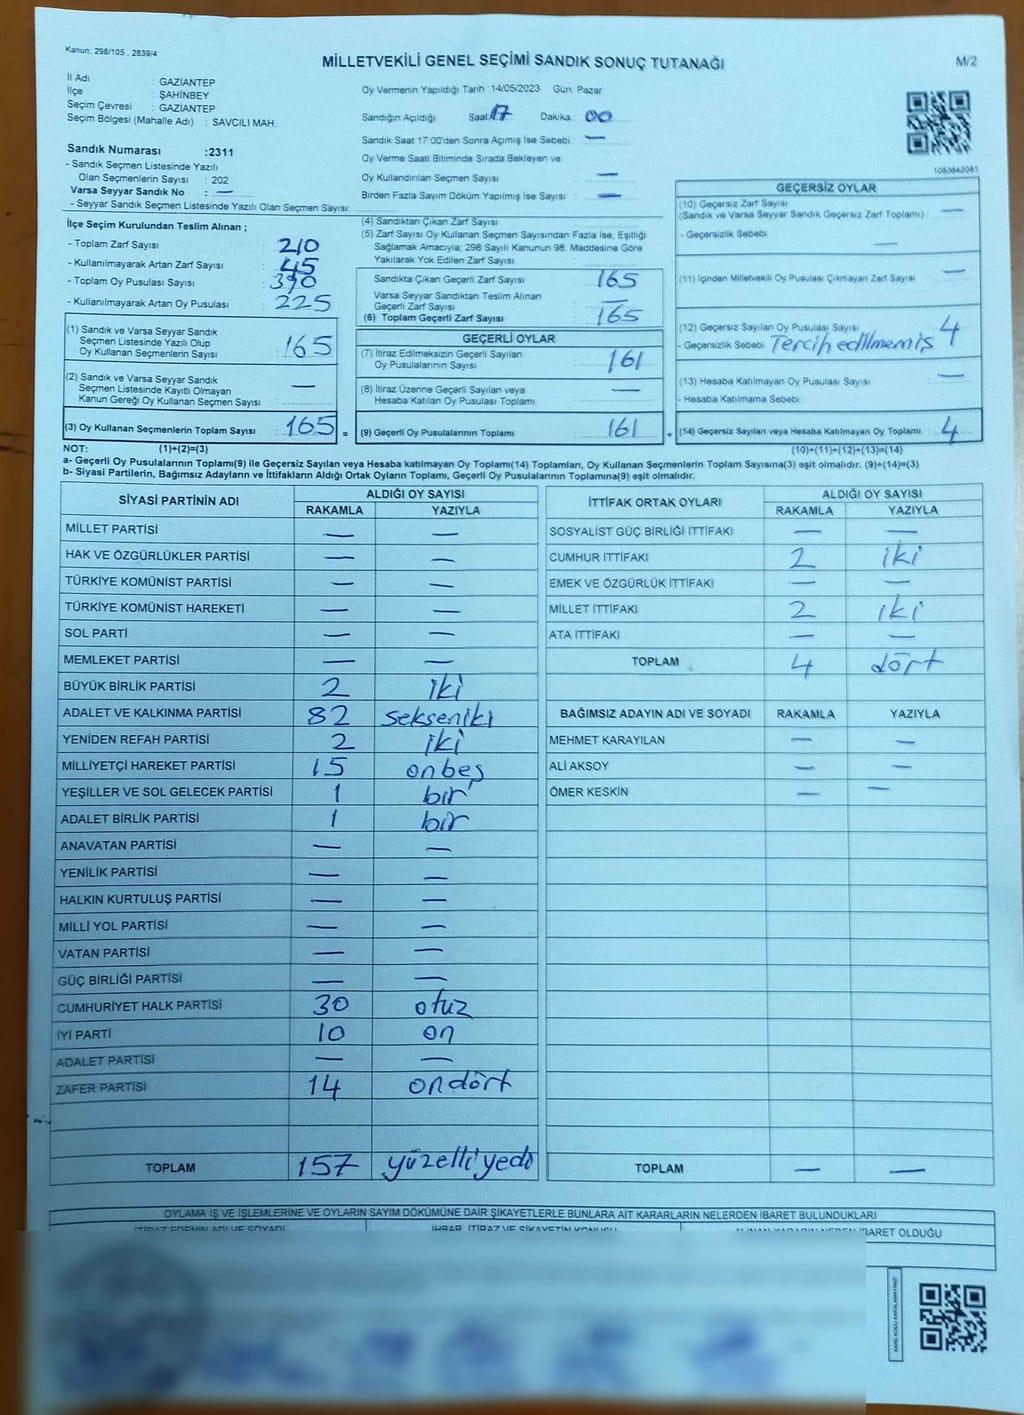 Kanun: 298/105 , 2839/4
MİLLETVEKİLİ GENEL SEÇİMİ SANDIK SONUÇ TUTANAĞI
M/2
İl Adı : GAZİANTEP
İlçe : ŞAHİNBEY
Seçim Çevresi : GAZİANTEP
Seçim Bölgesi (Mahalle Adı) : SAVCILI MAH.
Sandık Numarası :2311
- Sandık Seçmen Listesinde Yazılı
Olan Seçmenlerin Sayısı : 202
Varsa Seyyar Sandık No : —
- Seyyar Sandık Seçmen Listesinde Yazılı Olan Seçmen Sayısı:
Oy Vermenin Yapıldığı Tarih :14/05/2023 Gün: Pazar
Sandığın Açıldığı Saat: 17 Dakika: 00
Sandık Saat 17:00'den Sonra Açılmış İse Sebebi: —
Oy Verme Saati Bitiminde Sırada Bekleyen ve
Oy Kullandırılan Seçmen Sayısı —
Birden Fazla Sayım Döküm Yapılmış İse Sayısı —
1083842081
İlçe Seçim Kurulundan Teslim Alınan ;
- Toplam Zarf Sayısı : 210
- Kullanılmayarak Artan Zarf Sayısı : 45
- Toplam Oy Pusulası Sayısı : 390
- Kullanılmayarak Artan Oy Pusulası : 225
(1) Sandık ve Varsa Seyyar Sandık
Seçmen Listesinde Yazılı Olup
Oy Kullanan Seçmenlerin Sayısı : 165
(2) Sandık ve Varsa Seyyar Sandık
Seçmen Listesinde Kayıtlı Olmayan
Kanun Gereği Oy Kullanan Seçmen Sayısı : —
(3) Oy Kullanan Seçmenlerin Toplam Sayısı : 165 =
(4) Sandıktan Çıkan Zarf Sayısı
(5) Zarf Sayısı Oy Kullanan Seçmen Sayısından Fazla İse, Eşitliği
Sağlamak Amacıyla; 298 Sayılı Kanunun 98. Maddesine Göre
Yakılarak Yok Edilen Zarf Sayısı
Sandıkta Çıkan Geçerli Zarf Sayısı : 165
Varsa Seyyar Sandıktan Teslim Alınan
Geçerli Zarf Sayısı : —
(6) Toplam Geçerli Zarf Sayısı : 165
GEÇERLİ OYLAR
(7) İtiraz Edilmeksizin Geçerli Sayılan
Oy Pusulalarının Sayısı : 161
(8) İtiraz Üzerine Geçerli Sayılan veya
Hesaba Katılan Oy Pusulası Toplamı : —
(9) Geçerli Oy Pusulalarının Toplamı : 161 +
GEÇERSİZ OYLAR
(10) Geçersiz Zarf Sayısı
(Sandık ve Varsa Seyyar Sandık Geçersiz Zarf Toplamı) : —
- Geçersizlik Sebebi : —
(11) İçinden Milletvekili Oy Pusulası Çıkmayan Zarf Sayısı : —
(12) Geçersiz Sayılan Oy Pusulası Sayısı : 4
- Geçersizlik Sebebi Tercih edilmemiş
(13) Hesaba Katılmayan Oy Pusulası Sayısı : —
- Hesaba Katılmama Sebebi :
(14) Geçersiz Sayılan veya Hesaba Katılmayan Oy Toplamı : 4
NOT: (1)+(2)=(3) (10)+(11)+(12)+(13)=(14)
a- Geçerli Oy Pusulalarının Toplamı(9) ile Geçersiz Sayılan veya Hesaba katılmayan Oy Toplamı(14) Toplamları, Oy Kullanan Seçmenlerin Toplam Sayısına(3) eşit olmalıdır. (9)+(14)=(3)
b- Siyasi Partilerin, Bağımsız Adayların ve İttifakların Aldığı Ortak Oyların Toplamı, Geçerli Oy Pusulalarının Toplamına(9) eşit olmalıdır.
SİYASİ PARTİNİN ADI ALDIĞI OY SAYISI
RAKAMLA YAZIYLA
MİLLET PARTİSİ — —
HAK VE ÖZGÜRLÜKLER PARTİSİ — —
TÜRKİYE KOMÜNİST PARTİSİ — —
TÜRKİYE KOMÜNİST HAREKETİ — —
SOL PARTİ — —
MEMLEKET PARTİSİ — —
BÜYÜK BİRLİK PARTİSİ 2 iki
ADALET VE KALKINMA PARTİSİ 82 sekseniki
YENİDEN REFAH PARTİSİ 2 iki
MİLLİYETÇİ HAREKET PARTİSİ 15 onbeş
YEŞİLLER VE SOL GELECEK PARTİSİ 1 bir
ADALET BİRLİK PARTİSİ 1 bir
ANAVATAN PARTİSİ — —
YENİLİK PARTİSİ — —
HALKIN KURTULUŞ PARTİSİ — —
MİLLİ YOL PARTİSİ — —
VATAN PARTİSİ — —
GÜÇ BİRLİĞİ PARTİSİ — —
CUMHURİYET HALK PARTİSİ 30 otuz
İYİ PARTİ 10 on
ADALET PARTİSİ — —
ZAFER PARTİSİ 14 ondört
TOPLAM 157 yüzelli yedi
İTTİFAK ORTAK OYLARI ALDIĞI OY SAYISI
RAKAMLA YAZIYLA
SOSYALİST GÜÇ BİRLİĞİ İTTİFAKI — —
CUMHUR İTTİFAKI 2 iki
EMEK VE ÖZGÜRLÜK İTTİFAKI — —
MİLLET İTTİFAKI 2 iki
ATA İTTİFAKI — —
TOPLAM 4 dört
BAĞIMSIZ ADAYIN ADI VE SOYADI RAKAMLA YAZIYLA
MEHMET KARAYILAN — —
ALİ AKSOY — —
ÖMER KESKİN — —
TOPLAM — —
OYLAMA İŞ VE İŞLEMLERİNE VE OYLARIN SAYIM DÖKÜMÜNE DAİR ŞİKAYETLERLE BUNLARA AİT KARARLARIN NELERDEN İBARET BULUNDUKLARI
İTİRAZ EDENİN ADI VE SOYADI İHBAR, İTİRAZ VE ŞİKAYETİN KONUSU İBARET OLDUĞU